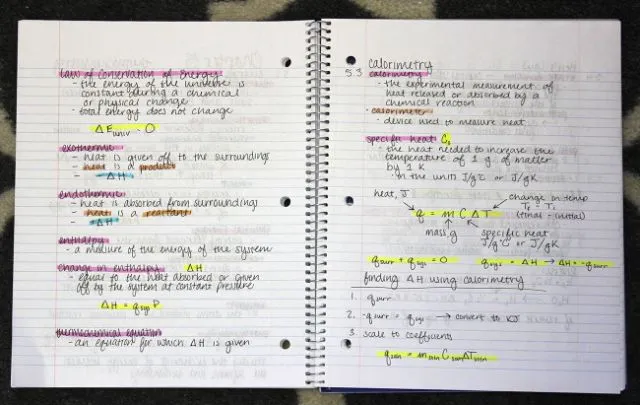 law of conservation of energy
- the energy of the universe is
constant during a chemical
or physical change
- total energy does not change
ΔE univ = 0
exothermic
- heat is given off to the surroundings
- heat is a product
- ΔH
endothermic
- heat is absorbed from surroundings
- heat is a reactant
- ΔH
enthalpy
- a measure of the energy of the system
change in enthalpy ΔH
- equal to the heat absorbed or given
off by the system at constant pressure
ΔH = q sys P
thermochemical equation
- an equation for which ΔH is given
5.3 calorimetry
calorimetry
- the experimental measurement of
heat released or absorbed by a
chemical reaction
- calorimeter
- device used to measure heat
specific heat Cs
- the heat needed to increase the
temperature of 1 g of matter
by 1 K
- in the units J/g°C or J/gK
heat, J
change in temp
Tf - Ti
(final - initial)
q = m C ΔT
mass, g
specific heat
J/g°C or J/gK
q surr + q sys = 0 q sys = ΔH → ΔH = -q surr
finding ΔH using calorimetry
1. q surr
2. -q surr = q sys → convert to KJ
3. scale to coefficients